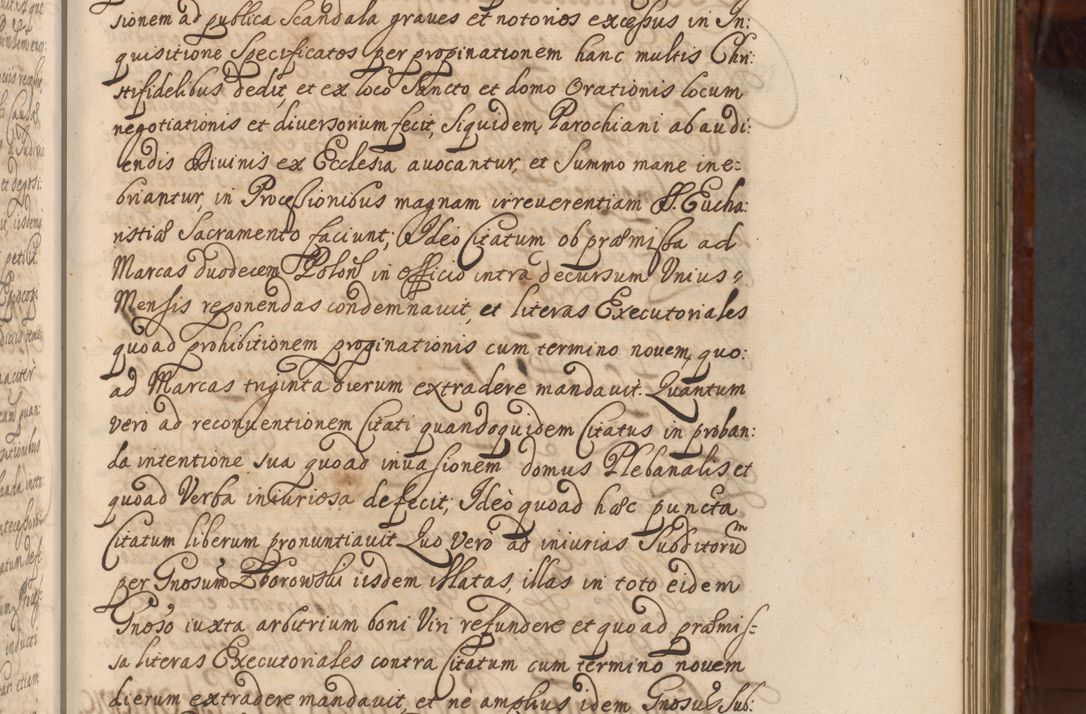 sionem ad publica scandala graves et notorios excessus in In:
quisitione Specificatos per propinationem hanc multis Chri:
stifidelibus dedit, et ex loco Sancto et domo Orationis locum
negotiationis et diversorium fecit, siquidem Parochiani ab audi:
endis Divinis ex Ecclesia avocantur, et Summo mane ine:
briantur, in Processionibus magnam irreverentiam SS. Eucha:
ristiæ Sacramento faciunt; Ideo Citatum ob præmissa ad
Marcas duodecem Polon̄ in officio intra decursum Unius
Mensis reponendas condemnauit, et literas Executoriales
quoad prohibitionem propinationis cum termino novem, quo:
ad Marcas triginta dierum extradere mandauit. Quantum
vero ad reconventionem Citati quandoquidem Citatus in proban:
da intentione sua quoad invasionem domus Plebanalis et
quoad Verba iniuriosa defecit; Ideò quoad hæc puncta
Citatum liberum pronuntiauit Quo verò ad iniurias Subditorũm
per Gnosum Zborowski iisdem illatas, illas in toto eidem
Gnoso iuxta arbitrium boni Viri refundere et quoad præmis:
sa literas Executoriales contra Citatum cum termino novem
dierum extradere mandauit, et ne amplius idem Gnosus Sub: